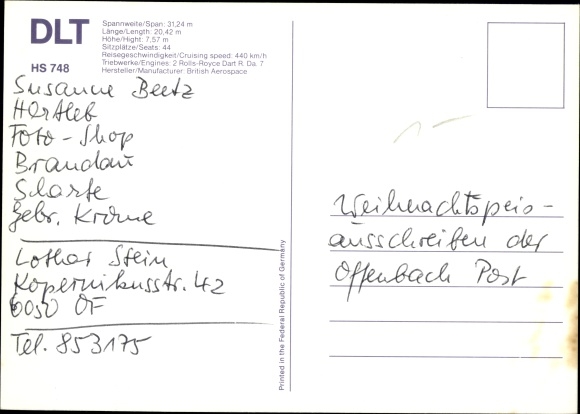 DLT
HS 748
Spannweite/Span: 31,24 m
Länge/Length: 20,42 m
Höhe/Hight: 7,57 m
Sitzplätze/Seats: 44
Reisegeschwindigkeit/Cruising speed: 440 km/h
Triebwerke/Engines: 2 Rolls-Royce Dart R. Da. 7
Hersteller/Manufacturer: British Aerospace
Susanne Beetz
Hertleb
Foto-Shop
Brandau
Scharfe
Gebr. Krome
Lothar Stein
Kopernikusstr. 42
6050 OF
Tel. 853175
Printed in the Federal Republic of Germany
Weihnachtspreis-
ausschreiben der
Offenbach Post